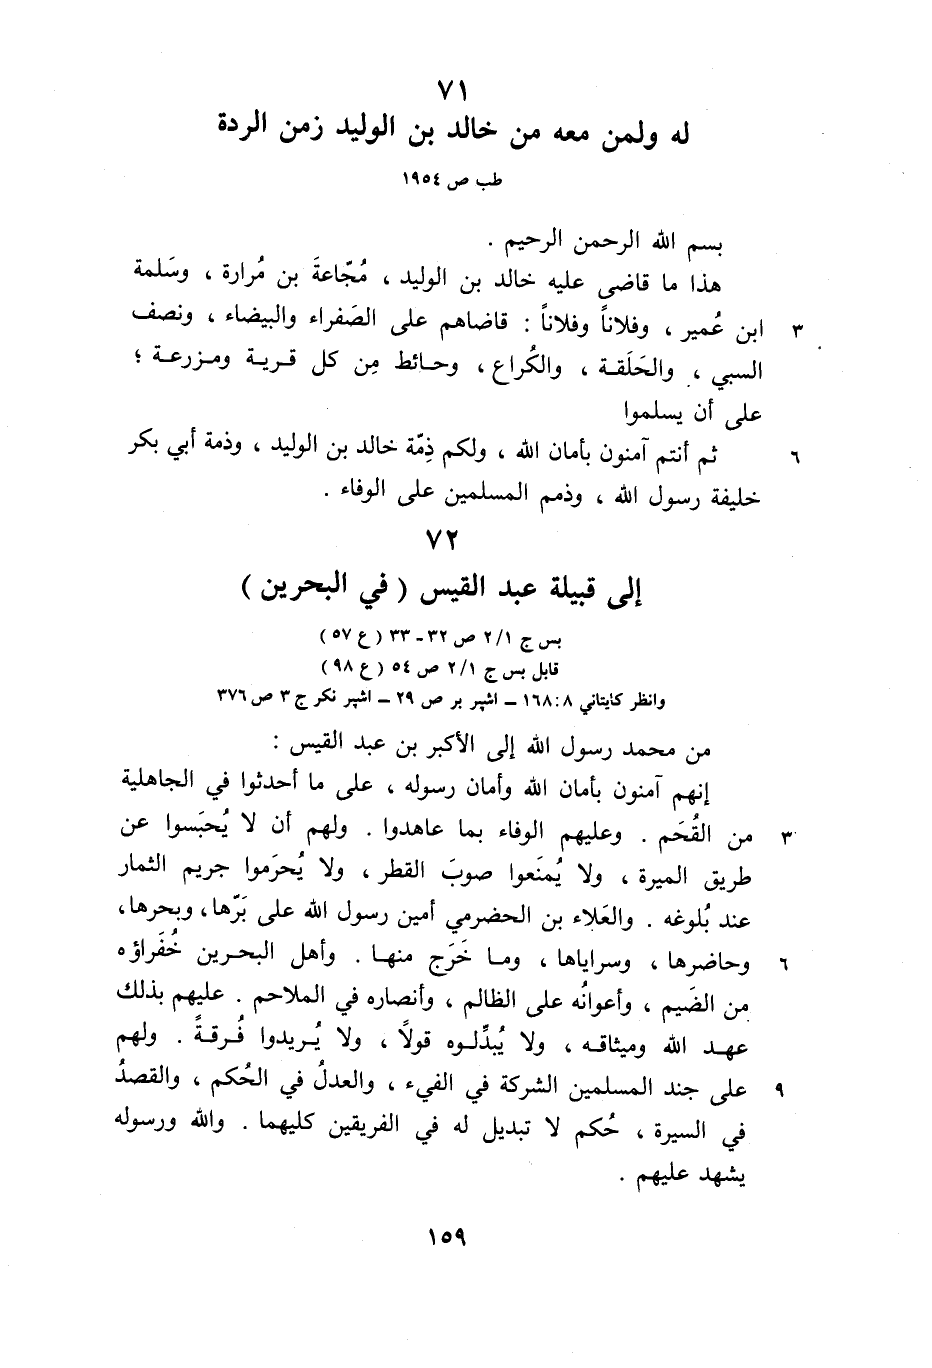 ٧١
له ولمن معه من خالد بن الوليد زمن الردة
طب ص ١٩٥٤
بسم الله الرحمن الرحيم .
هذا ما قاضى عليه خالد بن الوليد ، مُجّاعةَ بن مُرارة ، وسَلمة
٣ ابن عُمير ، وفلاناً وفلاناً : قاضاهم على الصَفراء والبيضاء ، ونصف
السبي ، والحَلَقة ، والكُراع ، وحائط مِن كل قرية ومزرعة ؛
على أن يسلموا
٦ ثم أنتم آمنون بأمان الله ، ولكم ذِمّة خالد بن الوليد ، وذمة أبي بكر
خليفة رسول الله ، وذمم المسلمين على الوفاء .
٧٢
إلى قبيلة عبد القيس ( في البحرين )
بس ج ٢/١ ص ٣٢ - ٣٣ ( ع ٥٧ )
قابل بس ج ٢/١ ص ٥٤ ( ع ٩٨ )
وانظر كايتاني ٨ : ١٦٨ – اشپر بر ص ٢٩ – اشپر نكر ج ٣ ص ٣٧٦
من محمد رسول الله إلى الأكبر بن عبد القيس :
إنهم آمنون بأمان الله وأمان رسوله ، على ما أحدثوا في الجاهلية
٣ من القُحَم . وعليهم الوفاء بما عاهدوا . ولهم أن لا يُحبَسوا عن
طريق الميرة ، ولا يُمنَعوا صوبَ القطر ، ولا يُحرَموا جريم الثمار
عند بُلوغه . والعَلاء بن الحضرمي أمين رسول الله على بَرّها، وبحرها،
٦ وحاضرها ، وسراياها ، وما خَرَج منها . وأهل البحرين خُفَراؤه
من الضَيم ، وأعوانُه على الظالم ، وأنصاره في الملاحم . عليهم بذلك
عهد الله وميثاقه ، ولا يُبدِّلوه قولاً ، ولا يُريدوا فُرقةً . ولهم
٩ على جند المسلمين الشركة في الفيء ، والعدلُ في الحُكم ، والقصدُ
في السيرة ، حُكم لا تبديل له في الفريقين كليهما . والله ورسوله
يشهد عليهم .
١٥٩